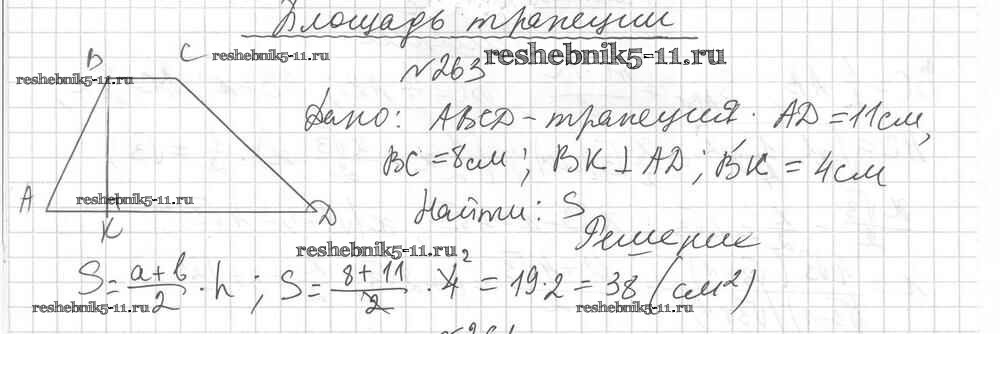 Площадь трапеции
reshebnik5-11.ru
reshebnik5-11.ru
B
C
reshebnik5-11.ru
№263
Дано: ABCD - трапеция. AD = 11 см,
BC = 8 см; BK ⊥ AD; BK = 4 см
reshebnik5-11.ru
A
D
K
Найти: S
Решение
reshebnik5-11.ru
S = (a+b)/2 · h; S = (8+11)/2 · 4 2 = 19·2 = 38 (см²)
reshebnik5-11.ru
reshebnik5-11.ru